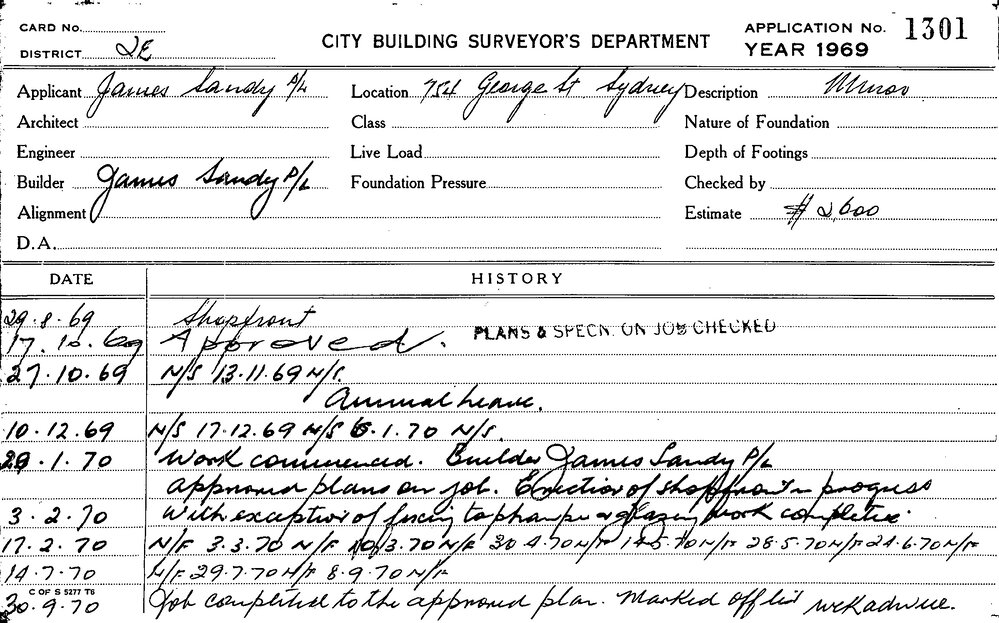 CARD No.
DISTRICT 2E
CITY BUILDING SURVEYOR'S DEPARTMENT
APPLICATION No. 1301
YEAR 1969
Applicant James Sandy P/L Location 754 George St Sydney Description Minor
Architect Class Nature of Foundation
Engineer Live Load Depth of Footings
Builder James Sandy P/L Foundation Pressure Checked by
Alignment Estimate $2,600
D.A.
DATE HISTORY
29.8.69 Shopfront
17.10.69 Approved. PLANS & SPECN. ON JOB CHECKED
27.10.69 N/S 13.11.69 N/S.
Annual Leave.
10.12.69 N/S 17.12.69 N/S 6.1.70 N/S.
29.1.70 Work commenced. Builder James Sandy P/L
approved plans on job. Erection of shopfront in progress
3.2.70 With exception of facing to & glazing work completed.
17.2.70 N/F 3.3.70 N/F 10.3.70 N/F 30.4.70 N/F 14.5.70 N/F 28.5.70 N/F 24.6.70 N/F
14.7.70 N/F 29.7.70 N/F 8.9.70 N/F
C OF S 5277 T6
30.9.70 Job completed to the approved plan. Marked off